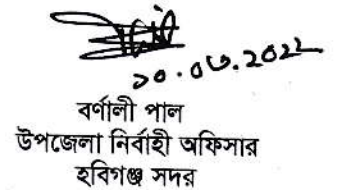 ১০.০৩.২০২২
বর্ণালী পাল
উপজেলা নির্বাহী অফিসার
হবিগঞ্জ সদর